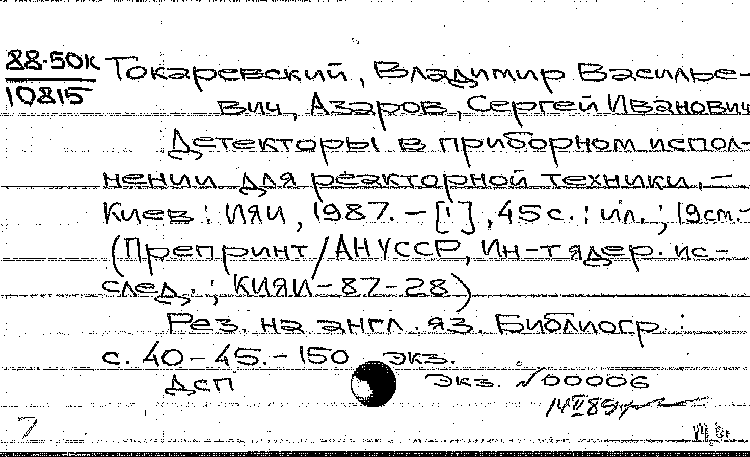 88-50К
10815
Токаревский, Владимир Василье-
вич, Азаров, Сергей Иванович
Детекторы в приборном испол-
нении для реакторной техники. –
Киев: ИЯИ, 1987. – [1], 45 с.: ил.; 19 см. –
(Препринт/АН УССР, Ин-т ядер. ис-
след.; КИЯИ-87-28)
Рез. на англ. яз. Библиогр.:
с. 40-45. – 150 экз.
ДСП экз. №00006
7